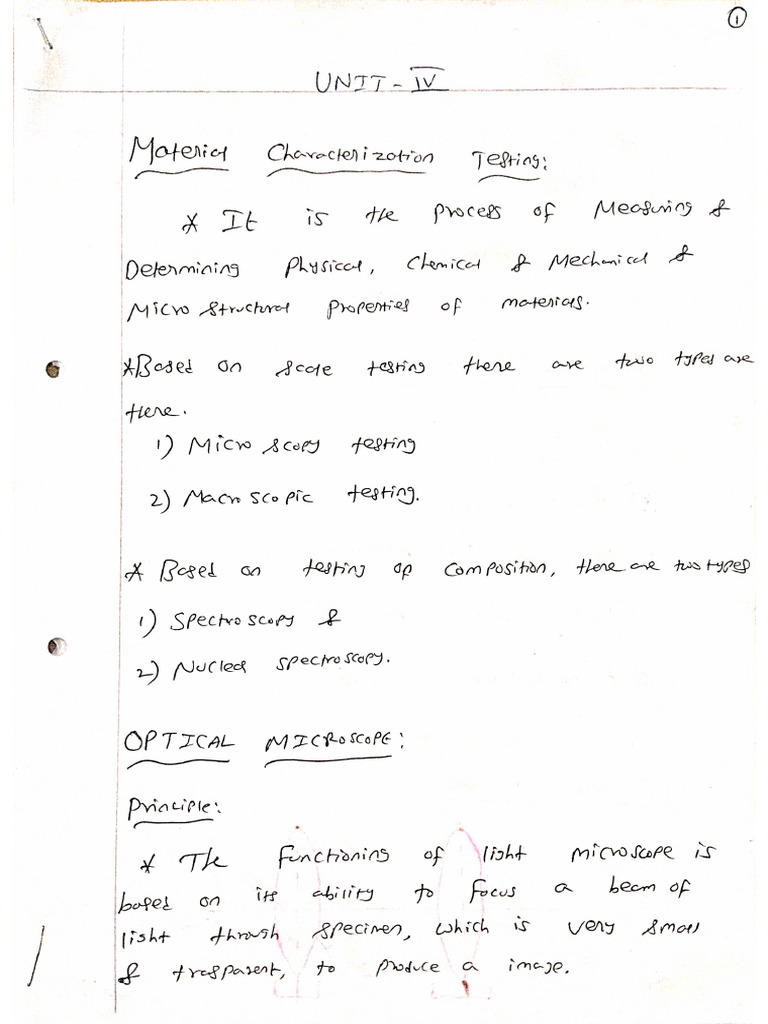 1
UNIT - IV
Material Characterization Testing:
* It is the process of Measuring &
Determining Physical, Chemical & Mechanical &
Micro structural properties of materials.
*Based on scale testing there are two types are
there.
1) Micro scopy testing
2) Macro scopic testing.
* Based on testing of composition, there are two types
1) Spectro scopy &
2) Nuclear spectroscopy.
OPTICAL MICROSCOPE:
Principle:
* The functioning of light microscope is
based on its ability to focus a beam of
light through specimen, which is very small
& trasparent, to produce a image.